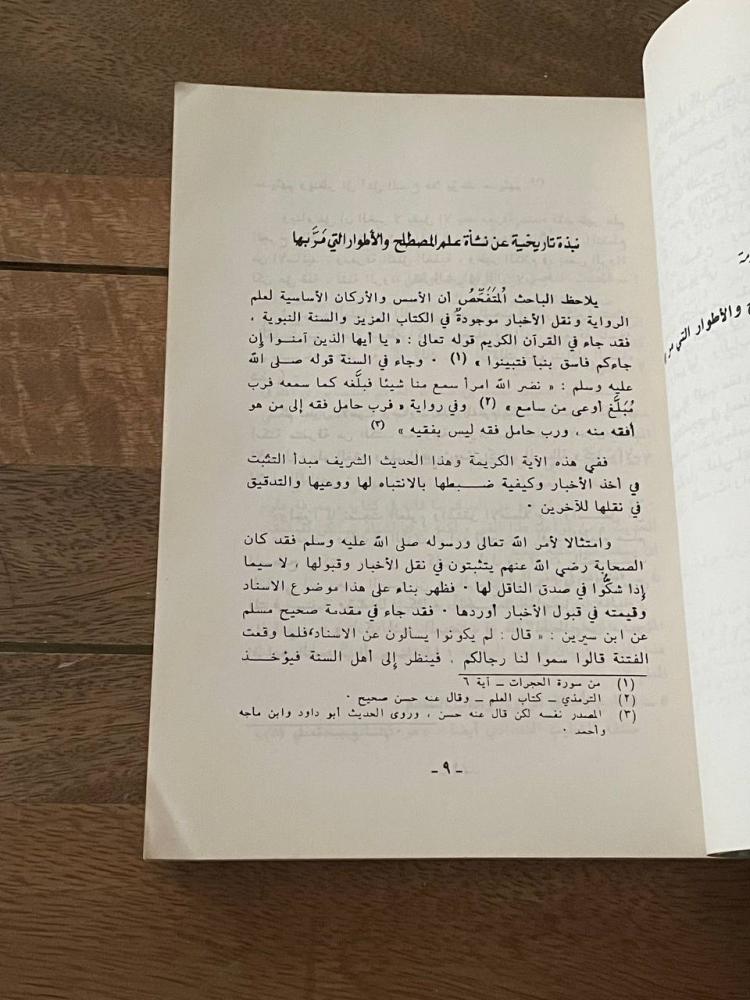 نبذة تاريخية عن نشأة علم المصطلح والأطوار التي مَرَّ بها
يلاحظ الباحث المُتَفَحِّصُ أن الأسس والأركان الأساسية لعلم
الرواية ونقل الأخبار موجودةٌ في الكتاب العزيز والسنة النبوية ،
فقد جاء في القرآن الكريم قوله تعالى : « يا أيها الذين آمنــوا إن
جاءكم فاسق بنبأ فتبينوا » (١) ٠ وجاء في السنة قوله صلى الله
عليه وسلم : « نضر الله امرأ سمع منا شيئا فبلَّغه كما سمعه فرب
مُبَلَّغ أوعى من سامع » (٢) وفي رواية « فرب حامل فقه إلى من هو
أفقه منه ، ورب حامل فقه ليس بفقيه » (٣)
ففي هذه الآية الكريمة وهذا الحديث الشريف مبدأ التثبت
في أخذ الأخبار وكيفية ضــبطها بالانتباه لها ووعيها والتدقيق
في نقلها للآخرين ٠
وامتثالا لأمر الله تعالى ورسوله صلى الله عليه وسلم فقد كان
الصحابة رضي الله عنهم يتثبتون في نقل الأخبار وقبولها ، لا سيما
إذا شكُّوا في صدق الناقل لها ٠ فظهر بناء على هذا موضوع الاسناد
وقيمته في قبول الأخبار أوردها ٠ فقد جاء في مقدمة صحيح مسلم
عن ابن سيرين : « قال : لم يكونوا يسألون عن الاسناد، فلما وقعت
الفتنة قالوا سموا لنا رجالكم ، فينظر إلى أهل السنة فيؤخــذ
(١) من سورة الحجرات ــ آية ٦
(٢) الترمذي ــ كتاب العلم ــ وقال عنه حسن صحيح ٠
(٣) المصدر نفسه لكن قال عنه حسن ، وروى الحديث أبو داود وابن ماجه
وأحمد ٠
- ٩ -
والأطوار التي